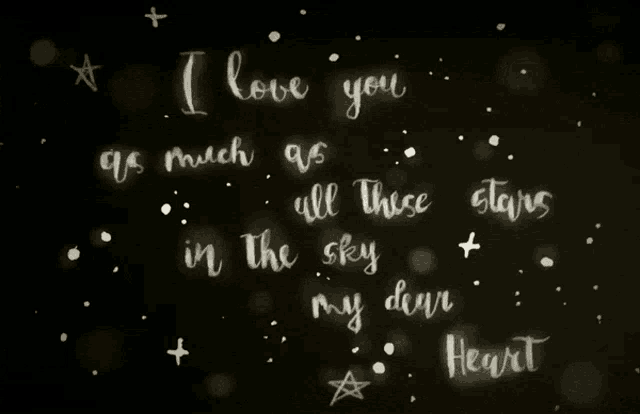 I love you
as much as
all these stars
in the sky
my dear
Heart